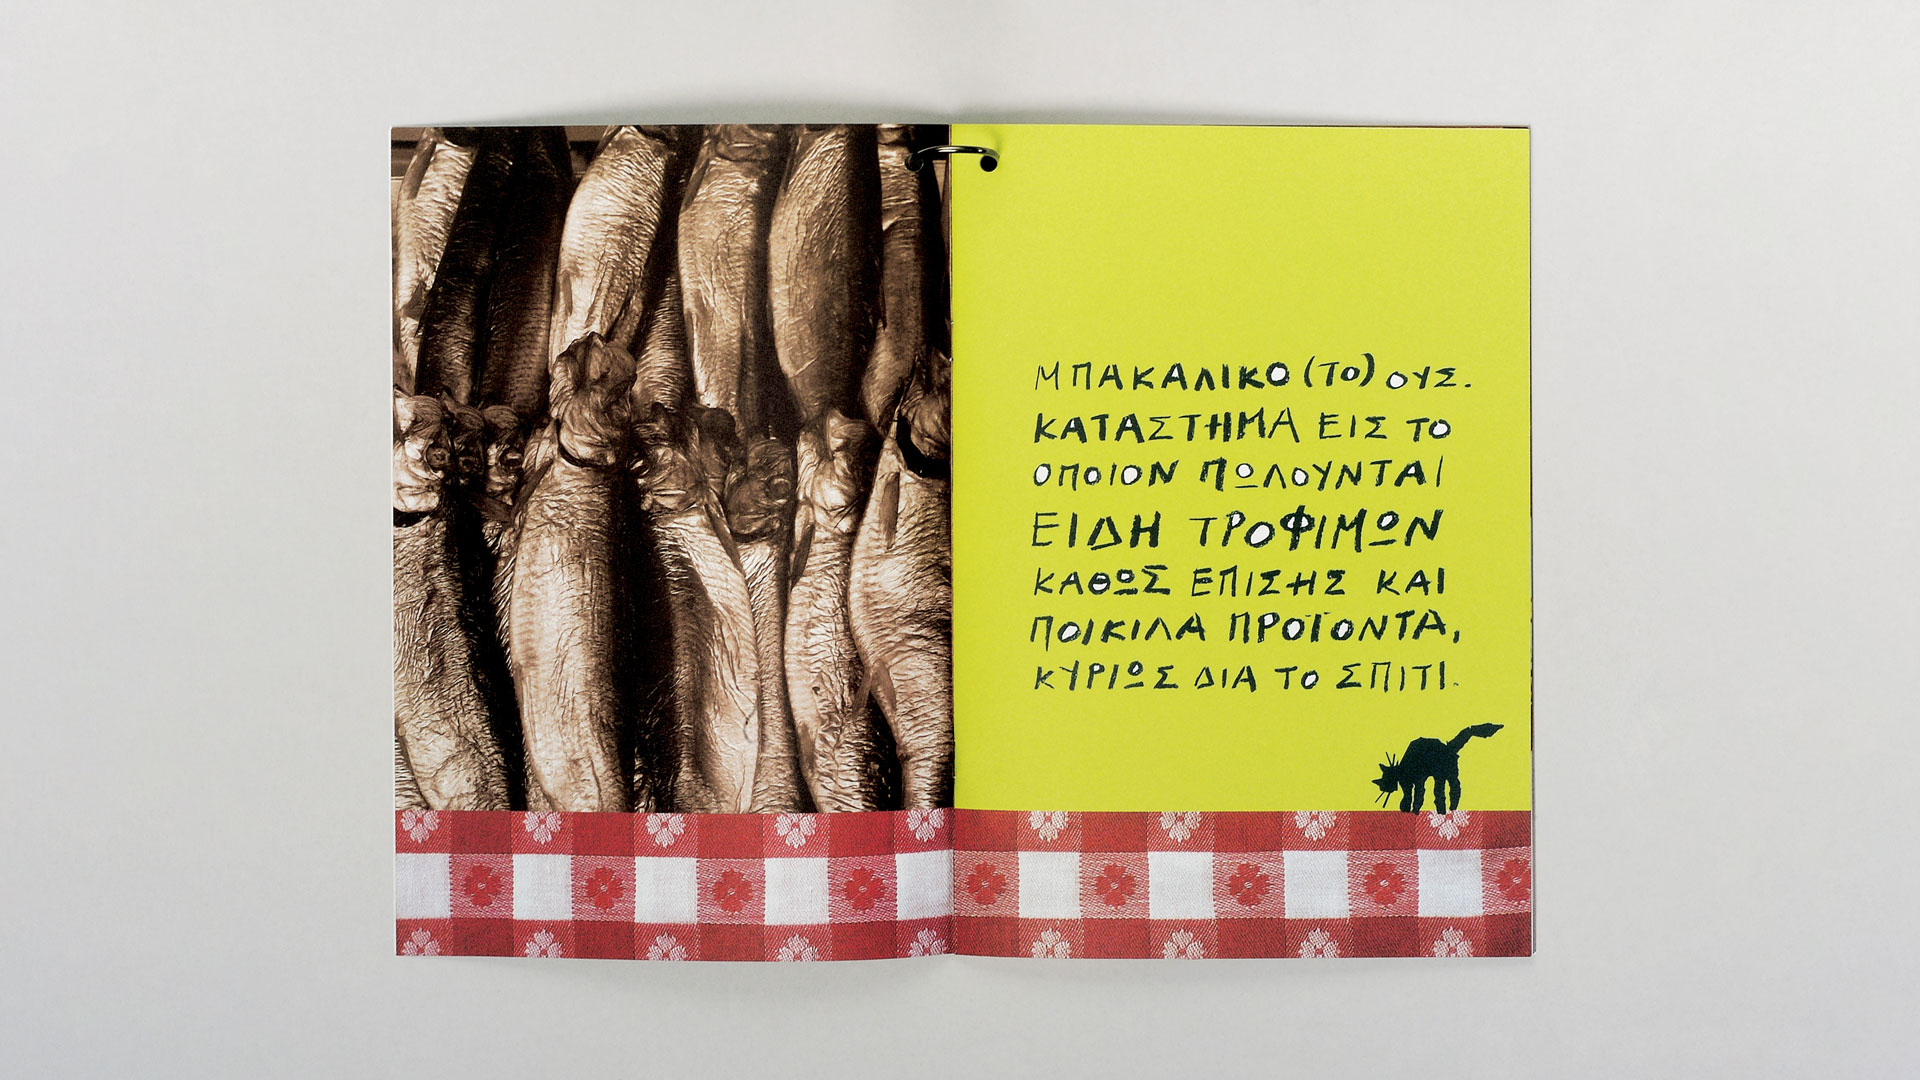 ΜΠΑΚΑΛΙΚΟ (ΤΟ) ΟΥΣ.
ΚΑΤΑΣΤΗΜΑ ΕΙΣ ΤΟ
ΟΠΟΙΟΝ ΠΩΛΟΥΝΤΑΙ
ΕΙΔΗ ΤΡΟΦΙΜΩΝ
ΚΑΘΩΣ ΕΠΙΣΗΣ ΚΑΙ
ΠΟΙΚΙΛΑ ΠΡΟΪΟΝΤΑ,
ΚΥΡΙΩΣ ΔΙΑ ΤΟ ΣΠΙΤΙ.